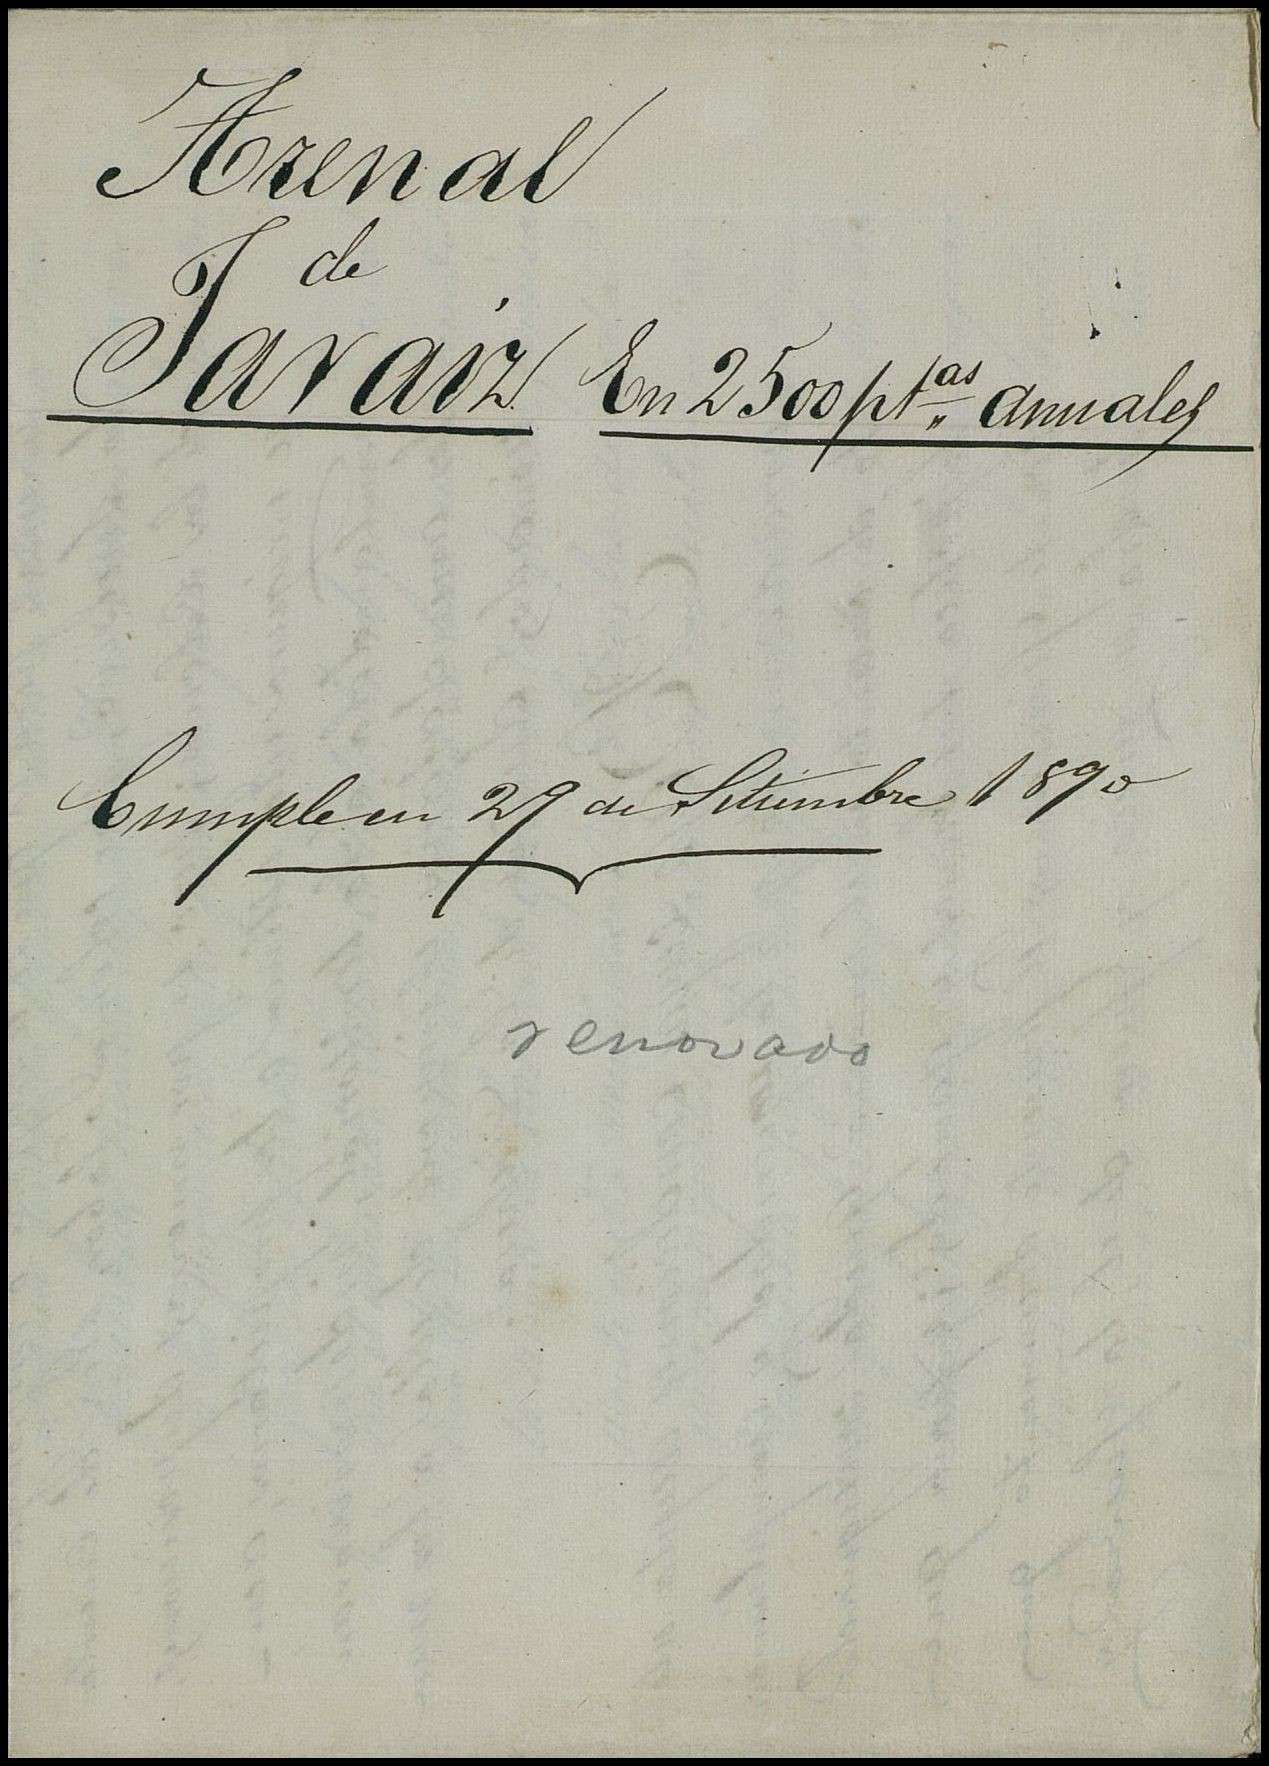 Arenal
de
Jaraíz En 2500 pt.as anuales
Cumple en 29 de Setiembre 1890
renovado